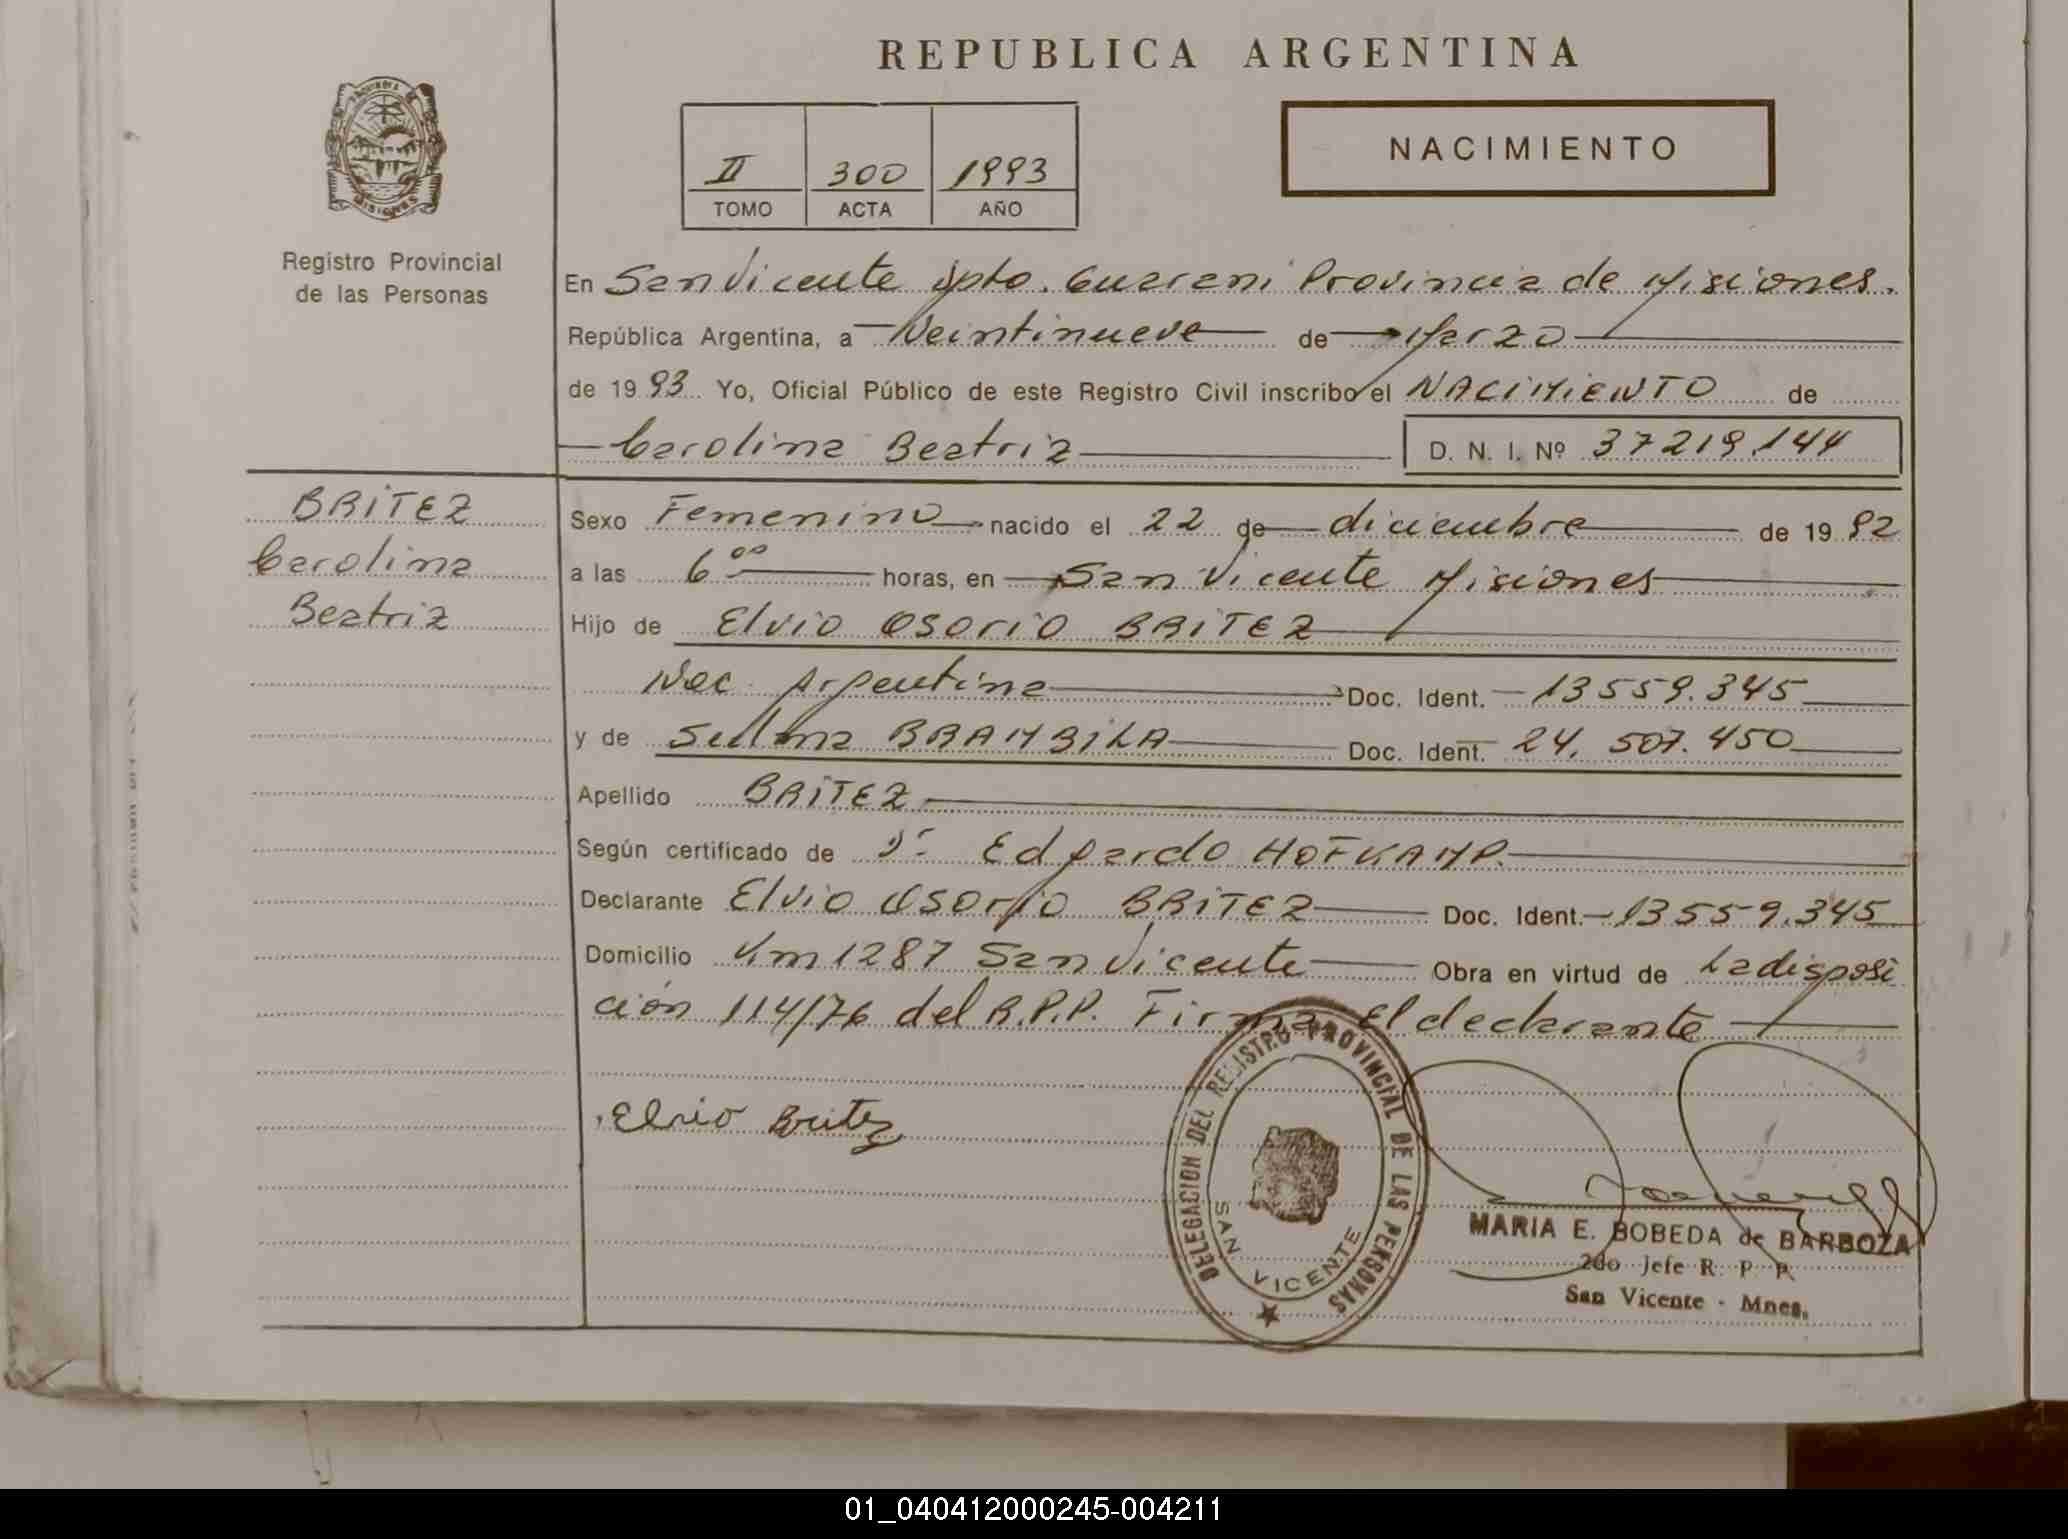 REPUBLICA ARGENTINA
NACIMIENTO
II 300 1993
TOMO ACTA AÑO
Registro Provincial
de las Personas
En San Vicente Dpto. Guarani Provincia de Misiones.
República Argentina, a Veintinueve de Marzo
de 1993. Yo, Oficial Público de este Registro Civil inscribo el NACIMIENTO de
Carolina Beatriz D. N. I. Nº 37219.144
BRITEZ
Carolina
Beatriz
Sexo Femenino nacido el 22 de diciembre de 1992
a las 6⁰⁰ horas, en San Vicente Misiones
Hijo de Elvio Osorio BRITEZ
Nac. Argentina Doc. Ident. 13559.345
y de Selma BRAMBILA Doc. Ident. 24.507.450
Apellido BRITEZ
Según certificado de Dr. Edgardo HOFKAMP.
Declarante Elvio Osorio BRITEZ Doc. Ident. 13559.345
Domicilio Km 1287 San Vicente Obra en virtud de La disposi
ción 114/76 del R.P.P. Firma El declarante
Elvio Britez
DELEGACION DEL REGISTRO PROVINCIAL DE LAS PERSONAS
SAN VICENTE
MARIA E. BOBEDA de BARBOZA
2do Jefe R. P. P.
San Vicente - Mnes.
01_040412000245-004211